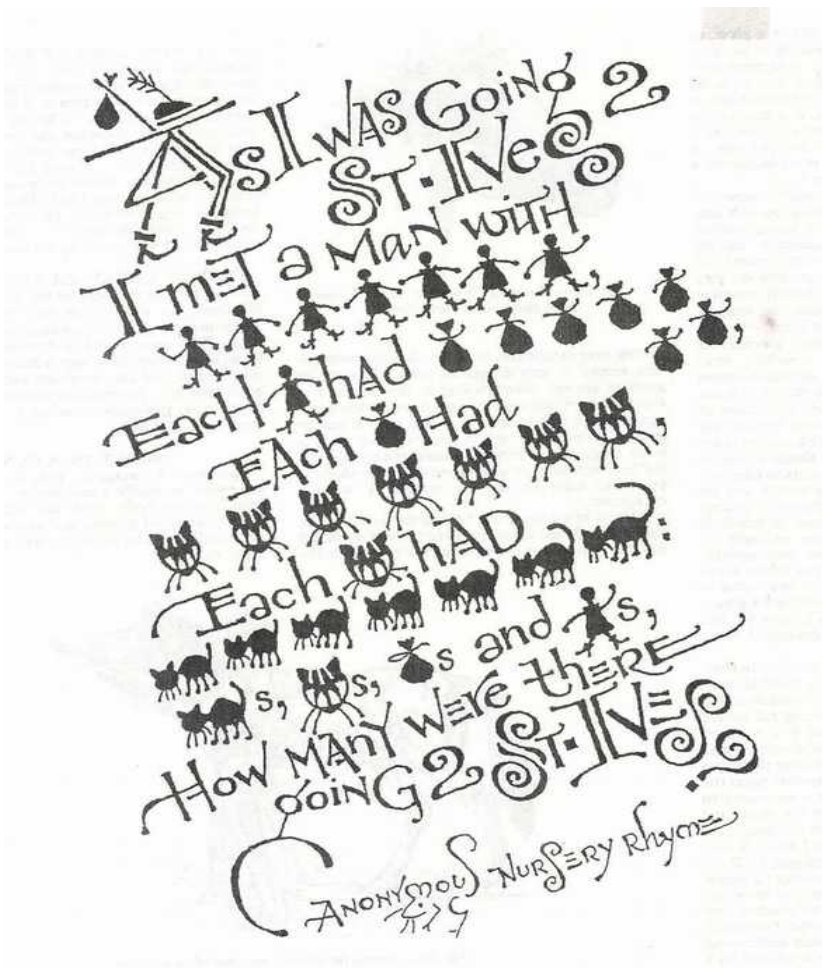 As I wAS GoiNg 2
ST·IVeS
I mET a MaN wiTH
EacH hAd
EAch Had
Each hAD
s and s,
s, s,
How MANY wEre thERE
GOiNG 2 ST·IVES.
ANONYMOUS NURSERY RhymE